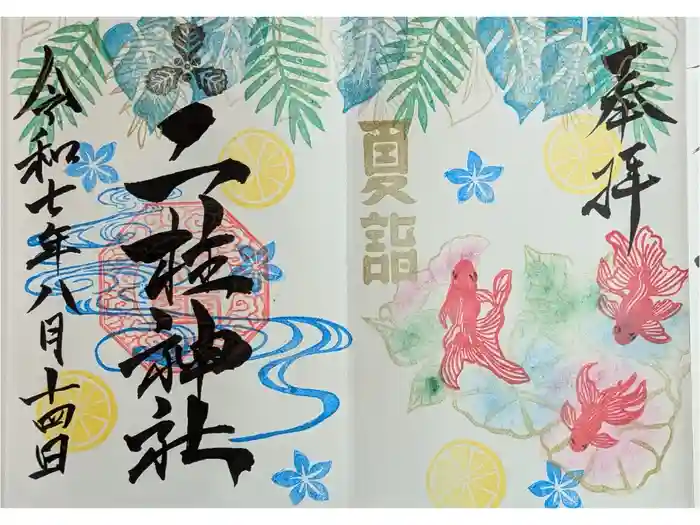 奉拝
夏詣
二桂神社
令和七年八月十四日